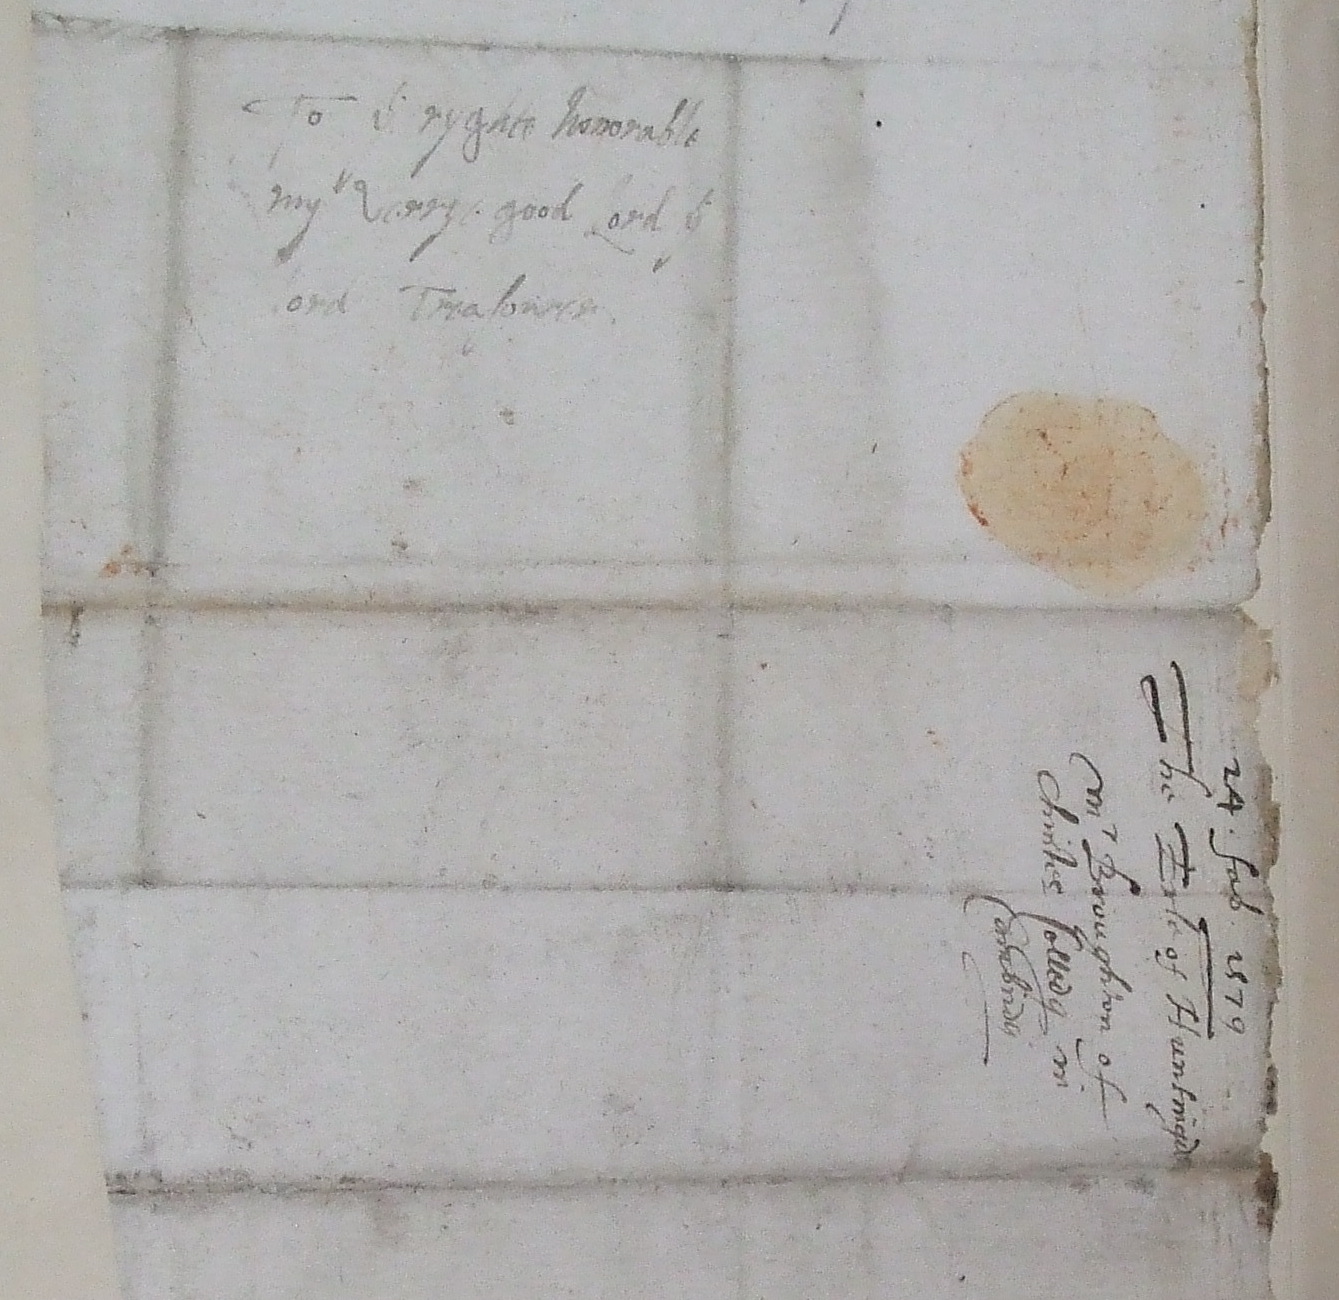 To yͤ ryghte honorable
my verrye good Lord yͤ
lord Treasourer.
24. feb. 1579
The Erle of Huntingd
Mr Broughton of
Christes Colledg in
Cambridg